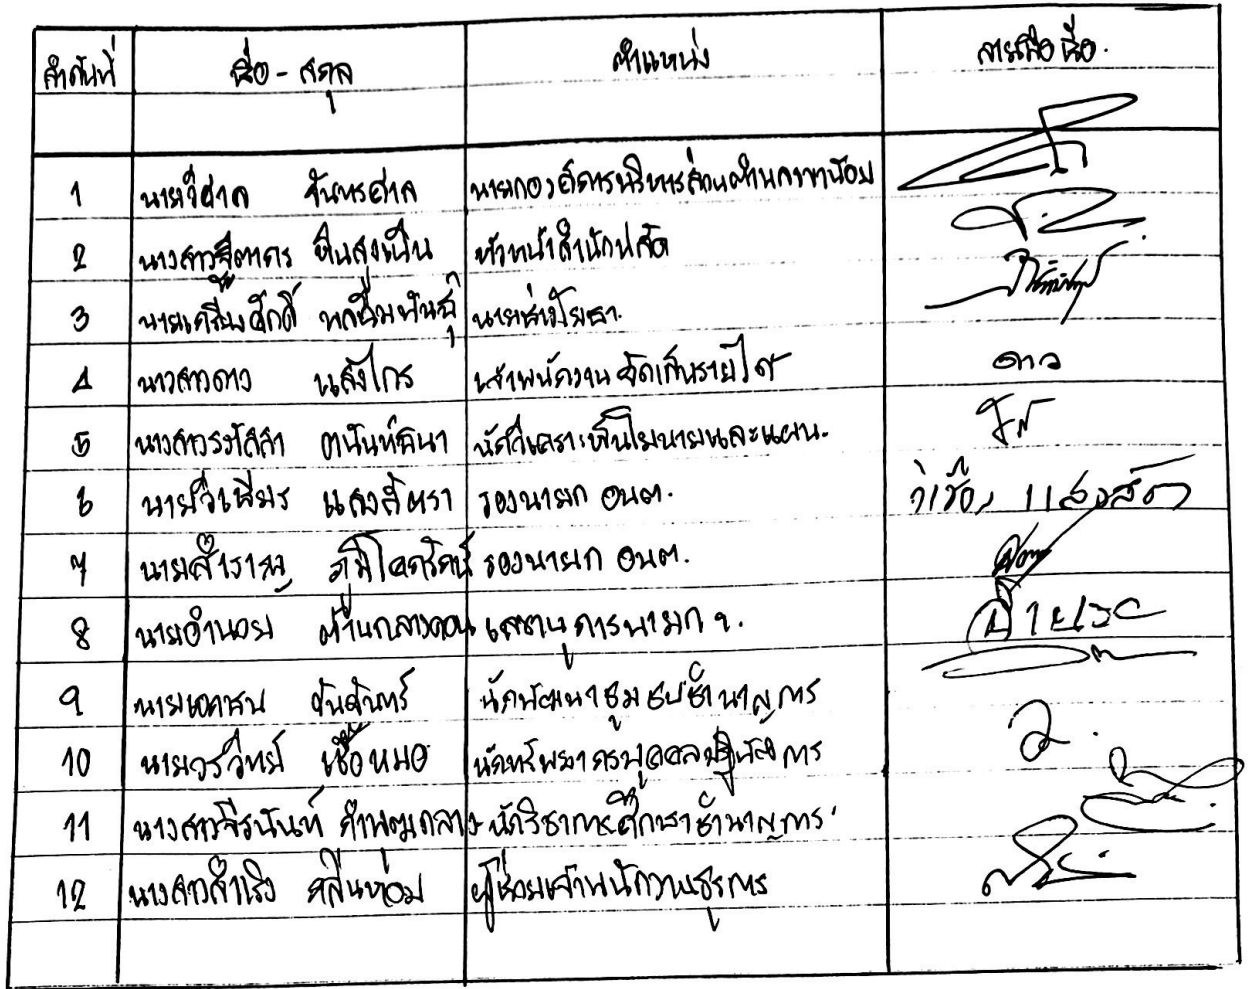 ลำดับที่ ชื่อ - สกุล ตำแหน่ง ลายมือชื่อ.
1 นายวิศาล จันทรศาล นายกองค์การบริหารส่วนตำบลเขาน้อย
2 นางสาวฐิตาภร ดินสูงเนิน หัวหน้าสำนักปลัด
3 นายเกรียงศักดิ์ นายช่างโยธา.
4 นางสาวดาว บลังไกร เจ้าพนักงานจัดเก็บรายได้ ดาว
5 นางสาว นักวิเคราะห์นโยบายและแผน.
6 นายวิเชียร แสงสีตรา รองนายก อบต.
7 นายสำราญ รองนายก อบต.
8 นายอำนวย ด่านกลางดอน เลขานุการนายก ฯ.
9 นายเอกชน จันจันทร์ นักพัฒนาชุมชนชำนาญการ
10 นายวรวิทย์ เชื้อหมอ นักทรัพยากรบุคคลปฏิบัติการ
11 นางสาวจีรนันท์ คำพุฒกลาง นักวิชาการศึกษาชำนาญการ
12 นางสาวสำเริง กลิ่นหอม ผู้ช่วยเจ้าพนักงานธุรการ